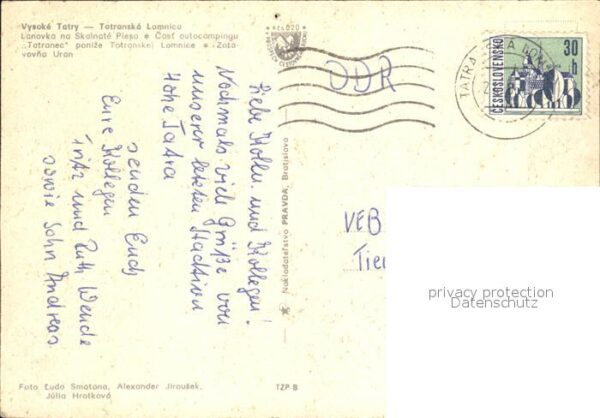 Vysoké Tatry — Tatranská Lomnica
Lanovka na Skalnaté Pleso • Časť autocampingu
„Tatranec" poniže Tatranskej Lomnice • Zota-
vovňa Uran
DDR
ČESKOSLOVENSKO
30
h
Liebe Kolln. und Kollegen!
Nochmals viele Grüße von
unserer letzten Station
Hohe Tatra
senden Euch
Eure Kollegen
Fritz und Ruth Wende
sowie Sohn Andreas.
Nakladateľstvo PRAVDA, Bratislava
VEB
Tier
privacy protection
Datenschutz
Foto Ľudo Smatana, Alexander Jiroušek,
Júlia Hratková
TZP-B